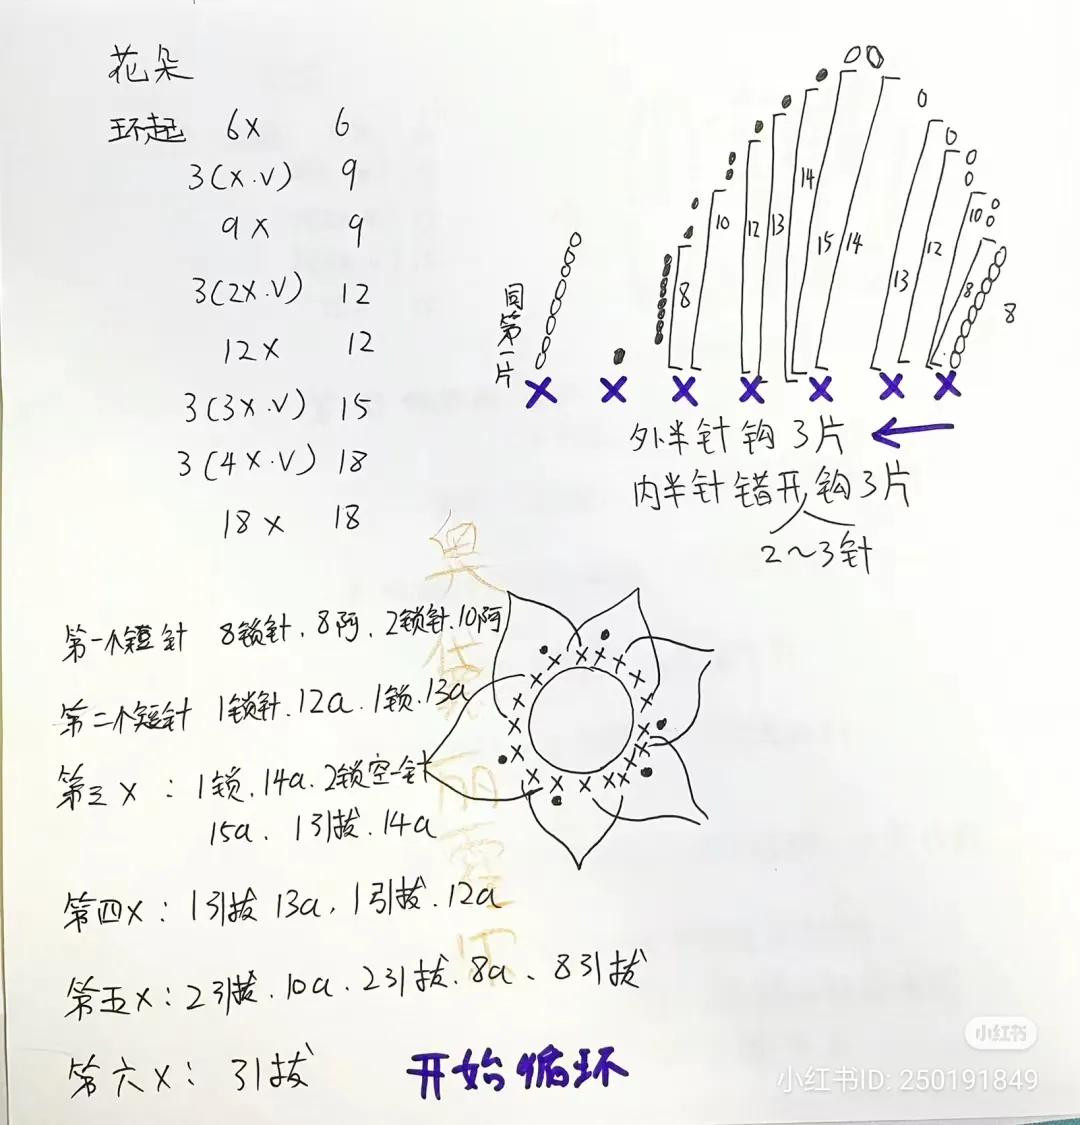 花朵
环起 6x 6
3(x.v) 9
9x 9
3(2x.v) 12
12x 12
3(3x.v) 15
3(4x.v) 18
18x 18
同第一片
8
10
12
13
14
15
14
13
12
10
8
8
x x x x x x x
外半针钩3片
内半针错开钩3片
2~3针
第一个短针 8锁针.8阿.2锁针.10阿
第二个短针 1锁针.12a.1锁.13a
第三x: 1锁.14a.2锁空一针
15a. 1引拔.14a
第四x: 1引拔 13a, 1引拔.12a
第五x: 2引拔.10a.2引拔.8a、8引拔
第六x: 引拔
开始循环
奥
丽
小红书
小红书ID: 250191849